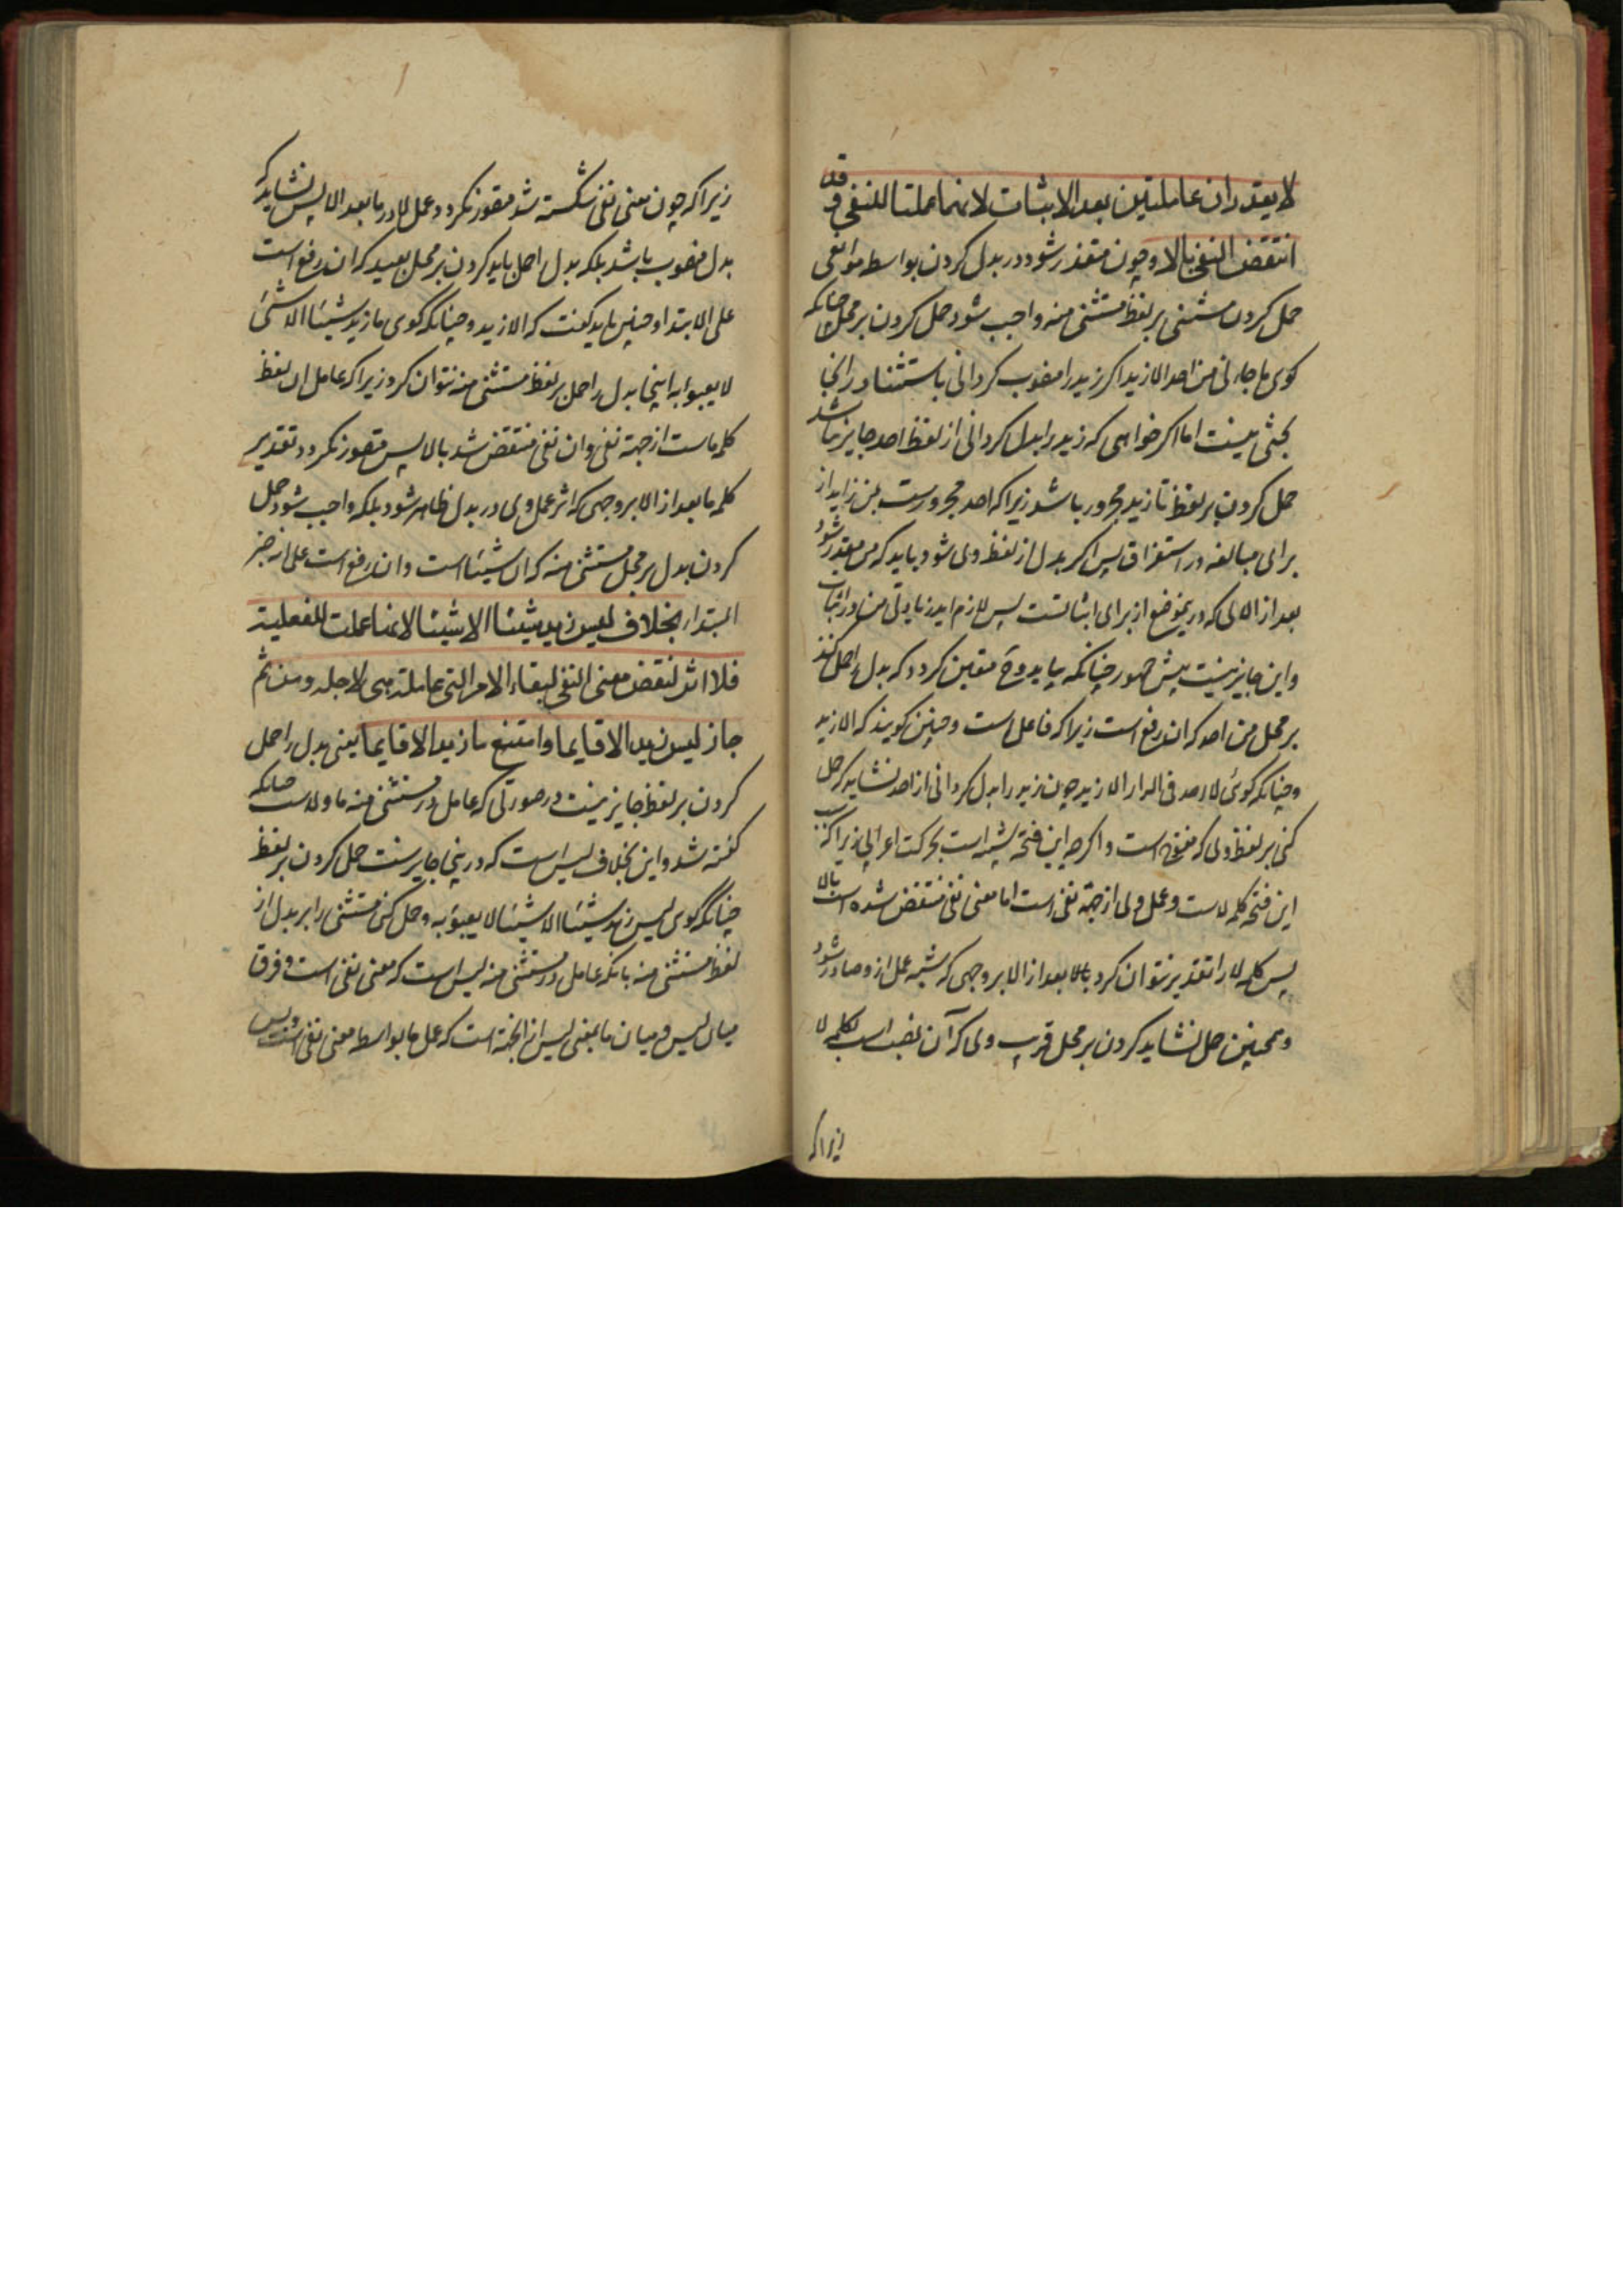 لا یقدران عاملتین بعد الاثبات لانهما عملتا للنفی و قد
انتقض النفی بالا و چون متعذر شود در بدل کردن بواسطه موانعی
حمل کردن مستثنی بر لفظ مستثنی منه واجب شود حمل کردن بر محل چنانکه
کوی ما جاءنی من احد الا زید اکر زید را منصوب کردانی باستثنا در انجا
بحثی نیست اما اکر خواهی که زید را بدل کردانی از لفظ احد جایز نباشد
حمل کردن بر لفظ تا زید مجرور باشد زیرا که احد مجرورست بمن زاید از
برای مبالغه در استغراق پس اکر بدل از لفظ وی شود باید که من مقدر شود
بعد از الا که درین موضع از برای اثباتست پس لازم اید زیادتی من در اثبات
و این جایز نیست پیش جمهور چنانکه بیاید و ح متعین کردد که بدل را حمل کنند
بر محل من احد که ان رفع است زیرا که فاعل است و چنین کویند که الا زید
و چنانکه کوی لا احد فی الدار الا زید چون زید را بدل کردانی از احد نشاید که حمل
کنی بر لفظ وی که مفتوح است و اکر چه این فتحه شبیه است بحرکت اعرابی زیرا که
این فتحه کلمه لاست و عمل وی از جهة نفی است اما معنی نفی منتقض شده است بالا
پس کلمه لا را تقدیر نتوان کرد بعد از الا بر وجهی که شبه عمل ازو صادر شود
و همچنین حمل نشاید کردن بر محل قریب وی که آن نصب است بکلمه لا
زیرا که
زیرا که چون معنی نفی شکسته شد متصور نکردد عمل لا در ما بعد الا پس نشاید که
بدل منصوب باشد بلکه بدل را حمل باید کردن بر محل بعید که ان رفع است
علی الابتدا و چنین باید کفت که الا زید و چنانکه کوی ما زید شیئا الا شیئ
لا یعبوا به اینجا بدل را حمل بر لفظ مستثنی منه نتوان کرد زیرا که عامل ان لفظ
کلمه ماست از جهة نفی و ان نفی منتقض شد بالا پس متصور نکردد تقدیر
کلمه ما بعد از الا بر وجهی که اثر عمل وی در بدل ظاهر شود بلکه واجب شود حمل
کردن بدل بر محل مستثنی منه که ان شیئا است و ان رفع است علی انه خبر
المبتدا بخلاف لیس زید شیئا الا شیئا لانها عملت للفعلیة
فلا اثر لنقض معنی النفی لبقاء الامر التی عاملته هی لاجله و من ثم
جاز لیس زید الا قایما و امتنع ما زید الا قایما یعنی بدل را حمل
کردن بر لفظ جایز نیست در صورتی که عامل در مستثنی منه ما و لاست چنانکه
کفته شد و این بخلاف لیس است که درینجا جایزست حمل کردن بر لفظ
چنانکه کوی لیس زید شیئا الا شیئا لا یعبؤ به و حمل کنی مستثنی را بر بدل از
لفظ مستثنی منه بانکه عامل در مستثنی منه لیس است که معنی نفی است و فرق
میان لیس و میان ما بمعنی لیس از انجهة است که عمل ما بواسطه معنی نفی است و بس